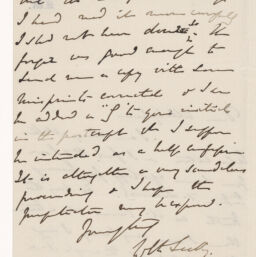 I had read it more carefully
I shd not have doubted it. The
forger was good enough to
send me a copy with some
misprints corrected & I see
he added a to your initials
in the postscript wh I suppose
he intended as a half confession
It is altogether a very scandalous
proceeding & I hope the
perpetrator may be exposed.
Yours truly